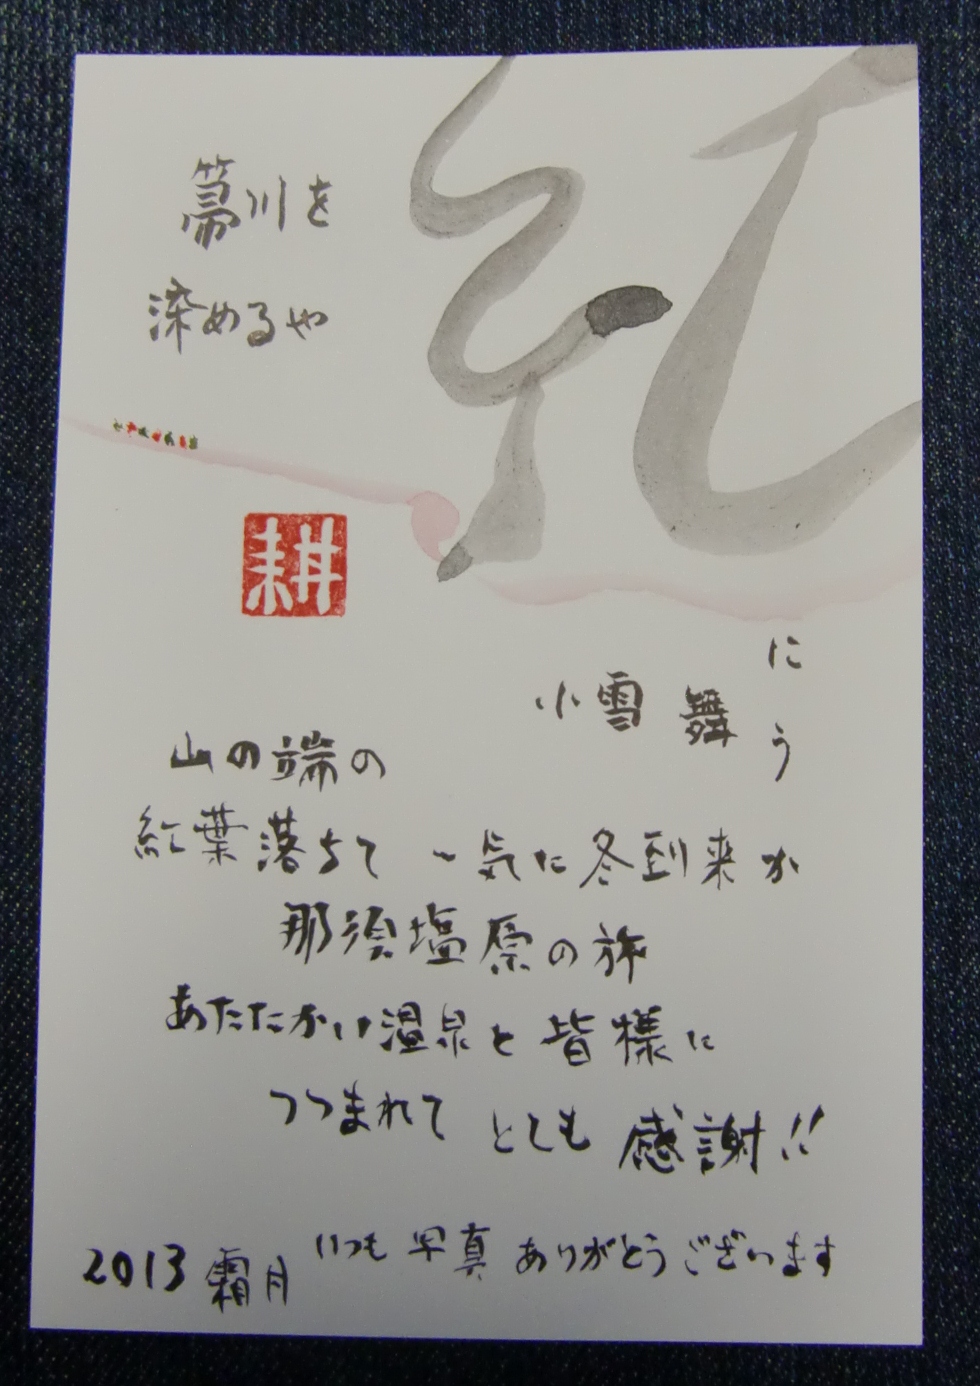 箒川を
染めるや
紅
に
小雪 舞う
耕
山の端の
紅葉落ちて 一気に冬到来か
那須塩原の旅
あたたかい温泉と皆様に
つつまれて とても 感謝!!
2013 霜月 いつも 写真 ありがとうございます